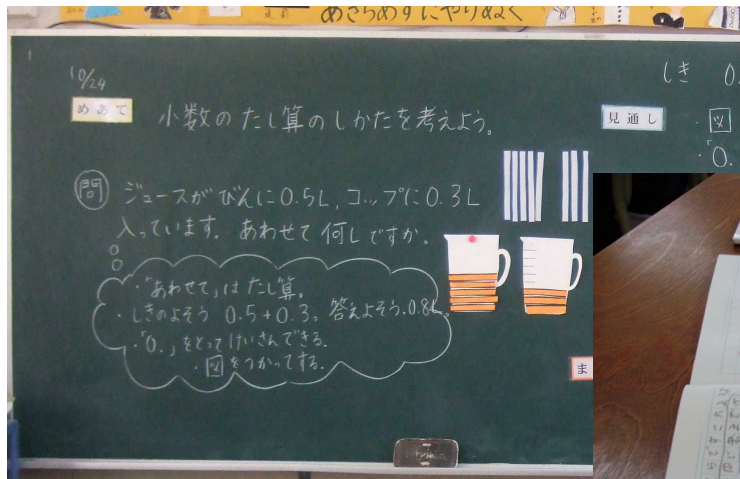 めさらめずにやりぬく
10/24
めあて
小数のたし算のしかたを考えよう。
見通し
しき 0.
図
「0.
問
ジュースがびんに0.5L、コップに0.3L
入っています。あわせて何Lですか。
・「あわせて」はたし算。
・しきのよそう 0.5+0.3。答えよそう.0.8L。
・「0.」をとってけいさんできる。
・図をつかってする。
ま